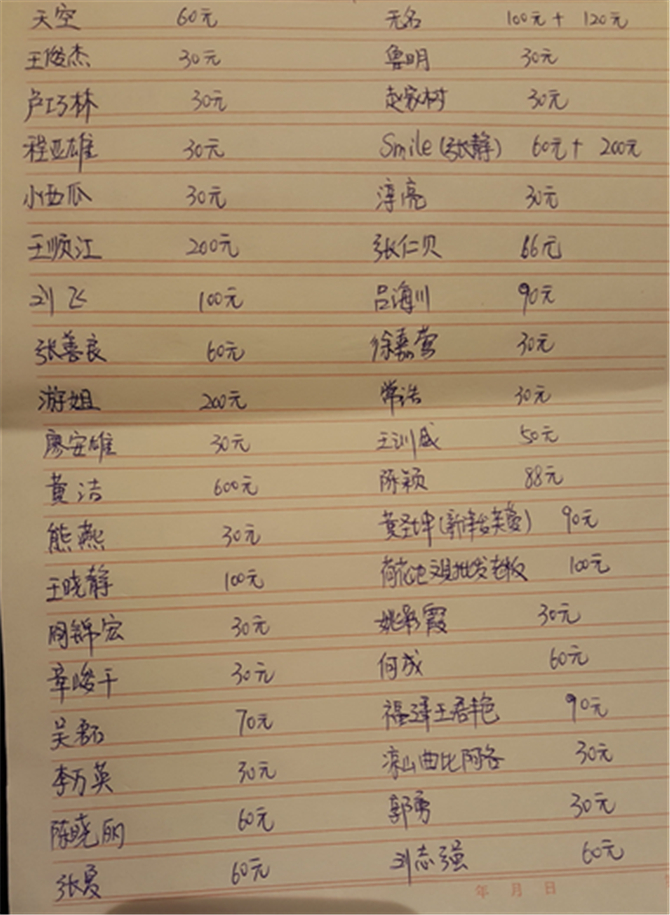 天空 60元 无名 100元 + 120元
王俊杰 30元 鲁明 30元
卢巧林 30元 赵家树 30元
程亚雄 30元 Smile(张静) 60元+ 200元
小西瓜 30元 淳亮 30元
王顺江 200元 张仁贝 66元
刘飞 100元 吕海川 90元
张善良 60元 徐嘉莺 30元
游姐 200元 常浩 30元
廖安雄 30元 王训成 50元
黄洁 600元 陈颖 88元
熊燕 30元 黄圣坤() 90元
王晓静 100元 荷花池文具批发老板 100元
周锦宏 30元 姚彩霞 30元
章峻干 30元 何成 60元
吴磊 70元 福泽王君艳 90元
李万英 30元 凉山曲比阿各 30元
陈晓丽 60元 郭勇 30元
张夏 60元 刘志强 60元
年 月 日